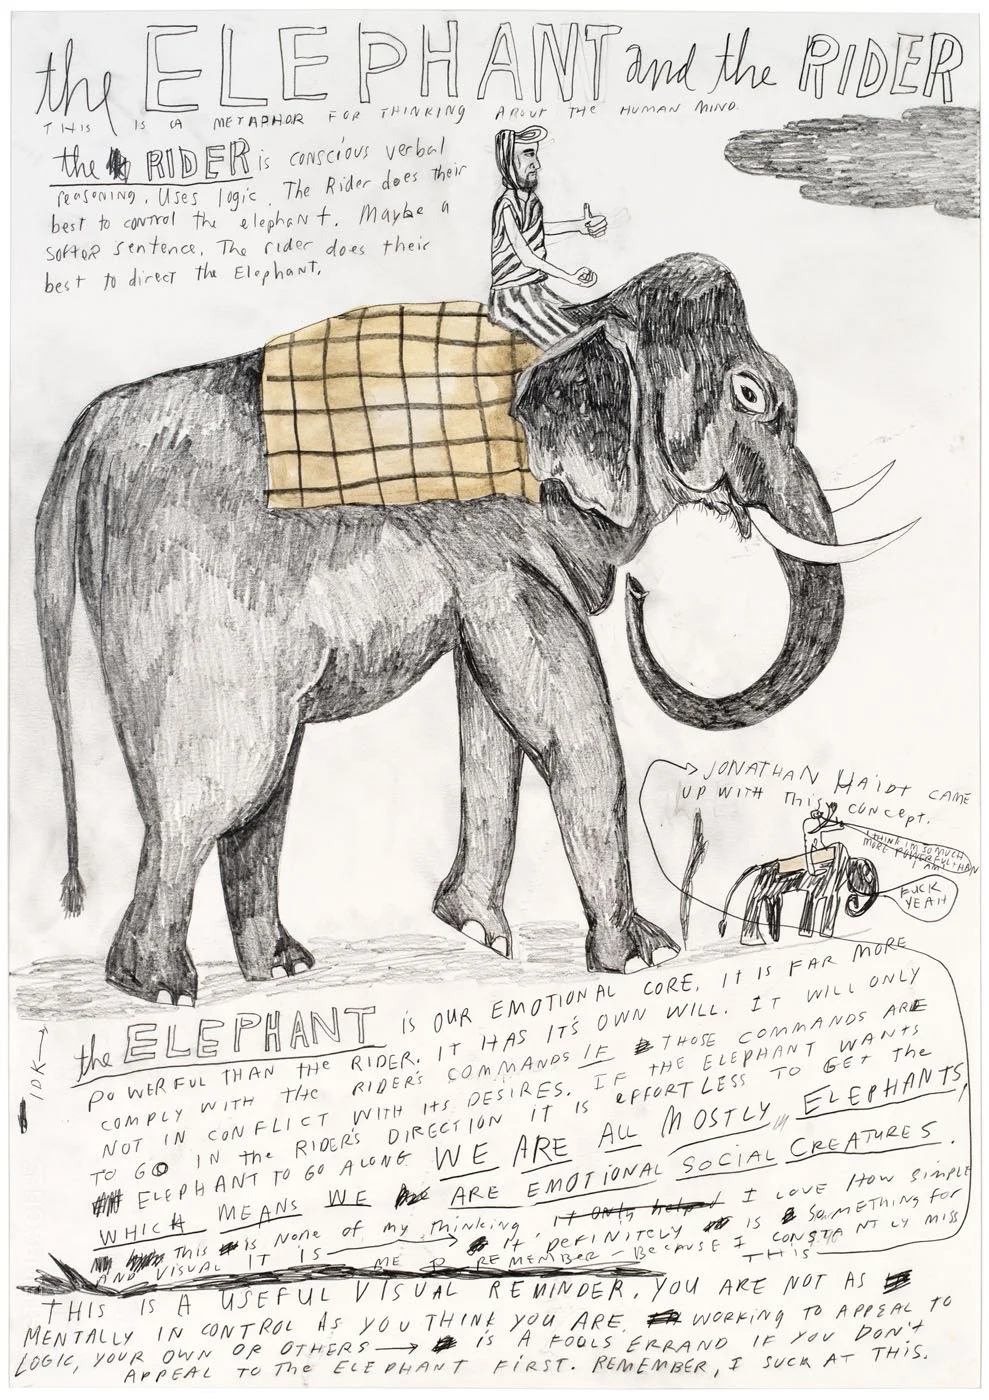 the ELEPHANT and the RIDER
THIS IS A METAPHOR FOR THINKING ABOUT THE HUMAN MIND.
the RIDER is conscious verbal
reasoning. Uses logic. The Rider does their
best to control the elephant. Maybe a
softer sentence. The rider does their
best to direct the Elephant.
JONATHAN HAIDT CAME
UP WITH THIS CONCEPT.
I THINK I'M SO MUCH
MORE POWERFUL THAN
I AM
FUCK
YEAH
IDK
the ELEPHANT IS OUR EMOTIONAL CORE. IT IS FAR MORE
POWERFUL THAN the RIDER. IT HAS IT'S OWN WILL. IT WILL ONLY
COMPLY WITH the RIDER'S COMMANDS IF THOSE COMMANDS ARE
NOT IN CONFLICT WITH ITS DESIRES. IF THE ELEPHANT WANTS
TO GO IN the RIDER'S DIRECTION IT IS EFFORTLESS TO GET the
ELEPHANT TO GO ALONG. WE ARE ALL MOSTLY ELEPHANTS,
WHICH MEANS WE ARE EMOTIONAL SOCIAL CREATURES.
This is none of my thinking it only helped I LOVE HOW SIMPLE
AND VISUAL IT IS it DEFINITELY IS SOMETHING for
ME to REMEMBER - BECAUSE I CONSTANTLY MISS
THIS
THIS IS A USEFUL VISUAL REMINDER. YOU ARE NOT AS
MENTALLY IN CONTROL AS YOU THINK YOU ARE. WORKING TO APPEAL TO
LOGIC, YOUR OWN OR OTHERS → IS A FOOLS ERRAND IF YOU DON'T
APPEAL TO The ELEPHANT FIRST. REMEMBER, I SUCK AT THIS.